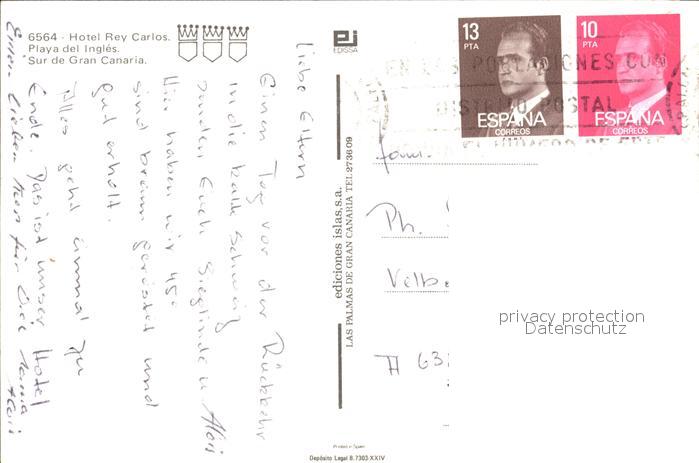 6564 - Hotel Rey Carlos.
Playa del Inglés.
Sur de Gran Canaria.
EDISSA
13
PTA
ESPAÑA
CORREOS
10
PTA
ESPAÑA
CORREOS
DISTRITO POSTAL
Liebe Eltern
Einen Tag vor der Rückkehr
in die kalte Schweiz
senden Euch Sieglinde u Alois
Hier haben wir 45°
sind braun geröstet und
gut erholt.
Alles geht einmal zu
Ende. Das ist unser Hotel
Einen lieben
ediciones islas,s.a.
LAS PALMAS DE GRAN CANARIA TEL 273609
Fam.
Ph.
Velbe
A 63
privacy protection
Datenschutz
Printed in Spain
Depósito Legal B.7303-XXIV